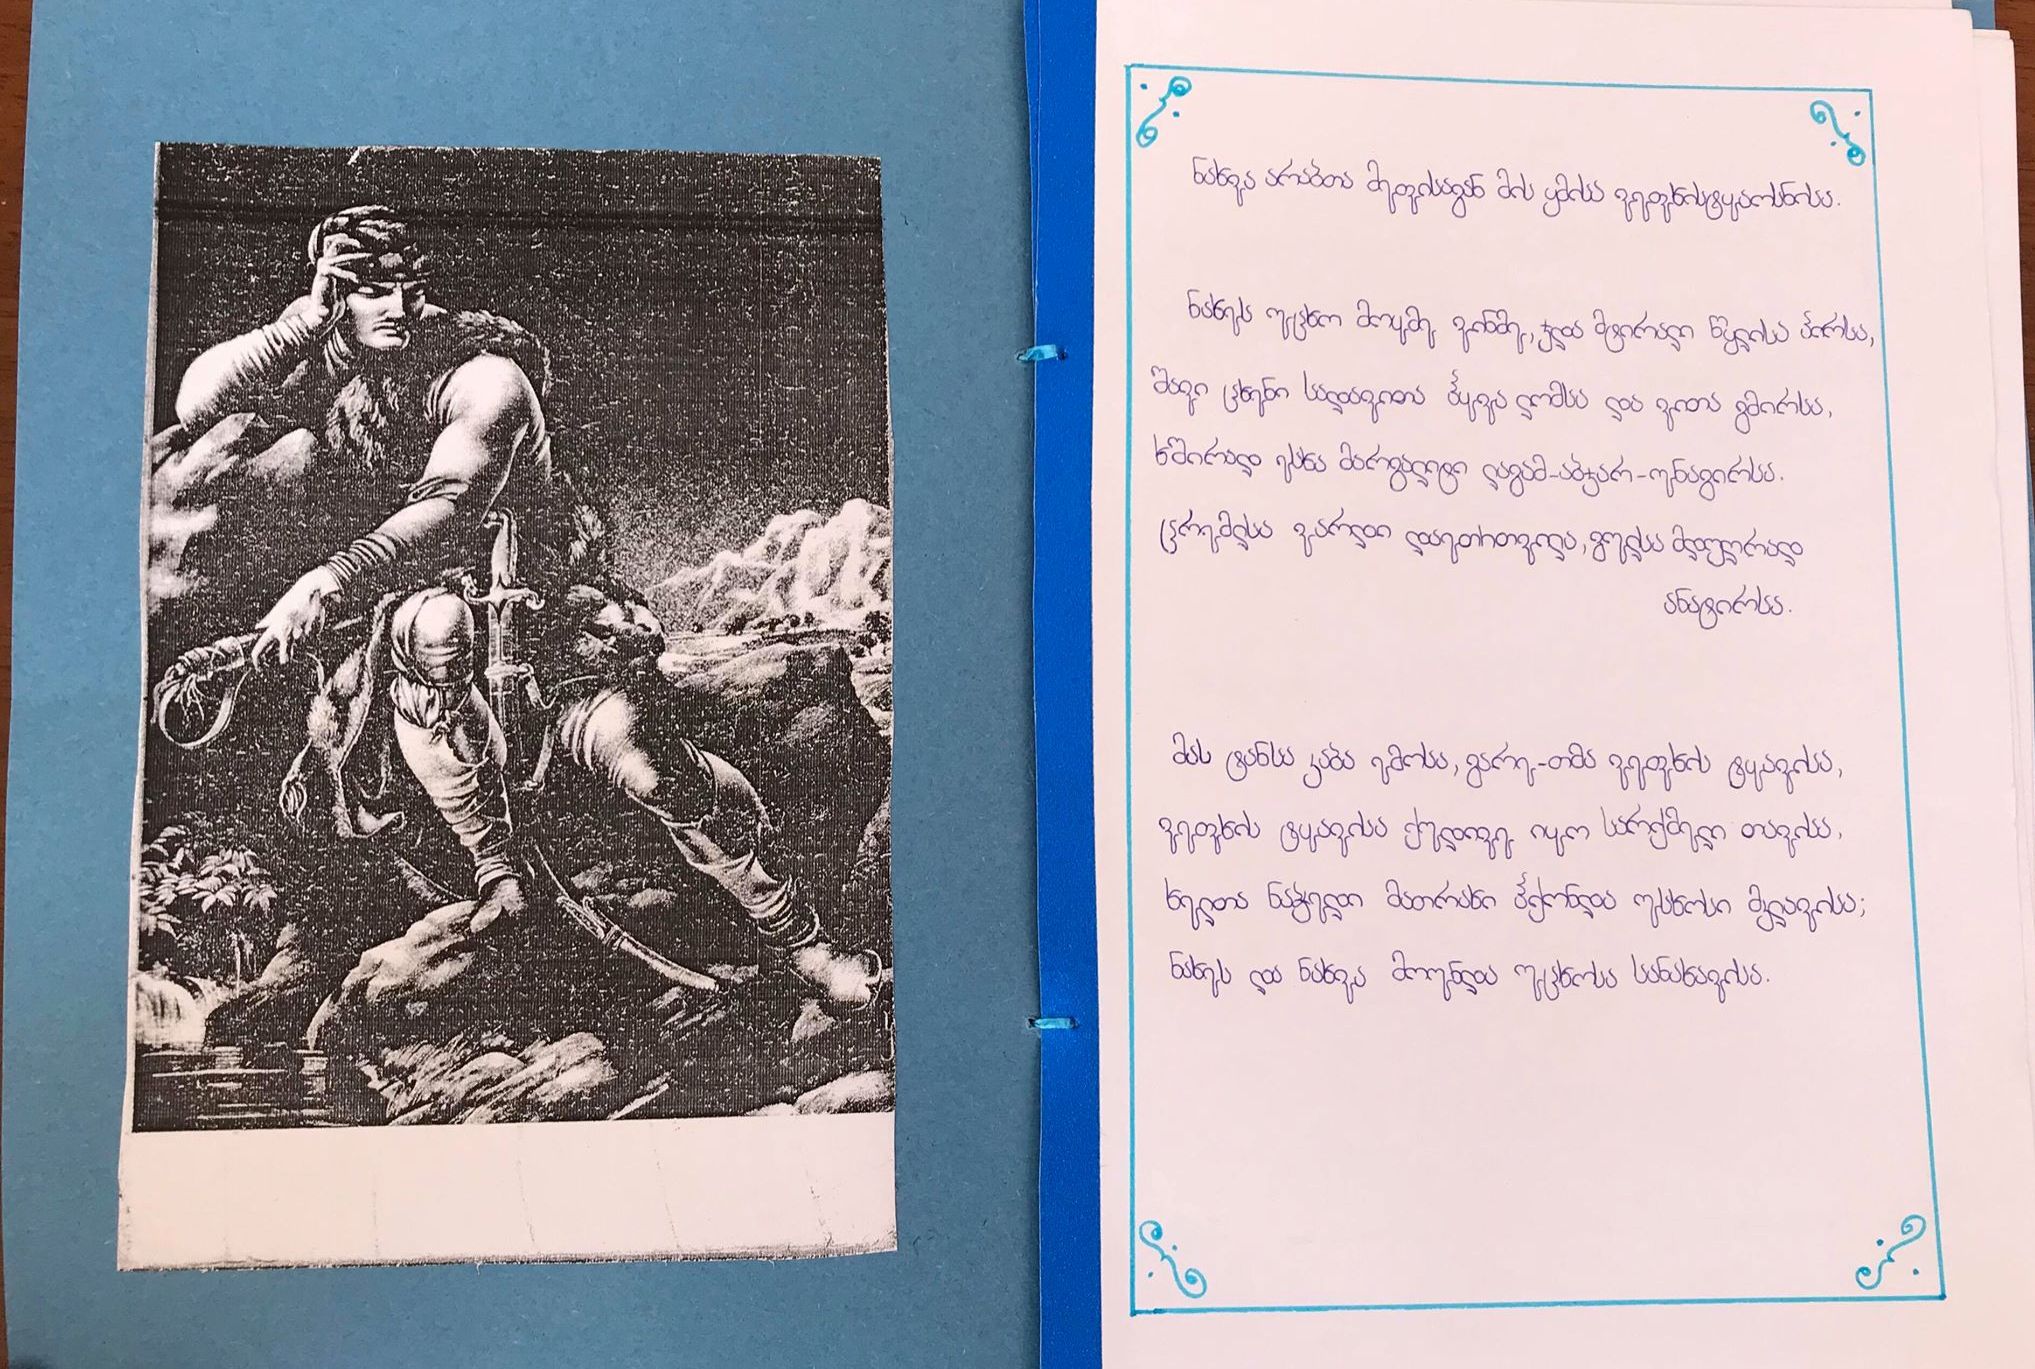 ნახვა არაბთა მეფისაგან მის ყმისა ვეფხისტყაოსნისა.
ნახეს უცხო მოყმე ვინმე, ჯდა მტირალი წყლისა პირსა,
შავი ცხენი სადავითა ჰყვა ლომსა და ვითა გმირსა,
ხშირად ესხა მარგალიტი ლაგამ-აბჯარ-უნაგირსა.
ცრემლსა ვარდი დაეთრთვილა, გულსა მდუღრად
ანატირსა.
მას ტანსა კაბა ემოსა, გარე-თმა ვეფხის ტყავისა,
ვეფხის ტყავისა ქუდივე იყო სარქმელი თავისა,
ხელთა ნაჭედი მათრახი ჰქონდა უსხოსი მკლავისა;
ნახეს და ნახვა მოუნდა უცხოსა სანახავისა.